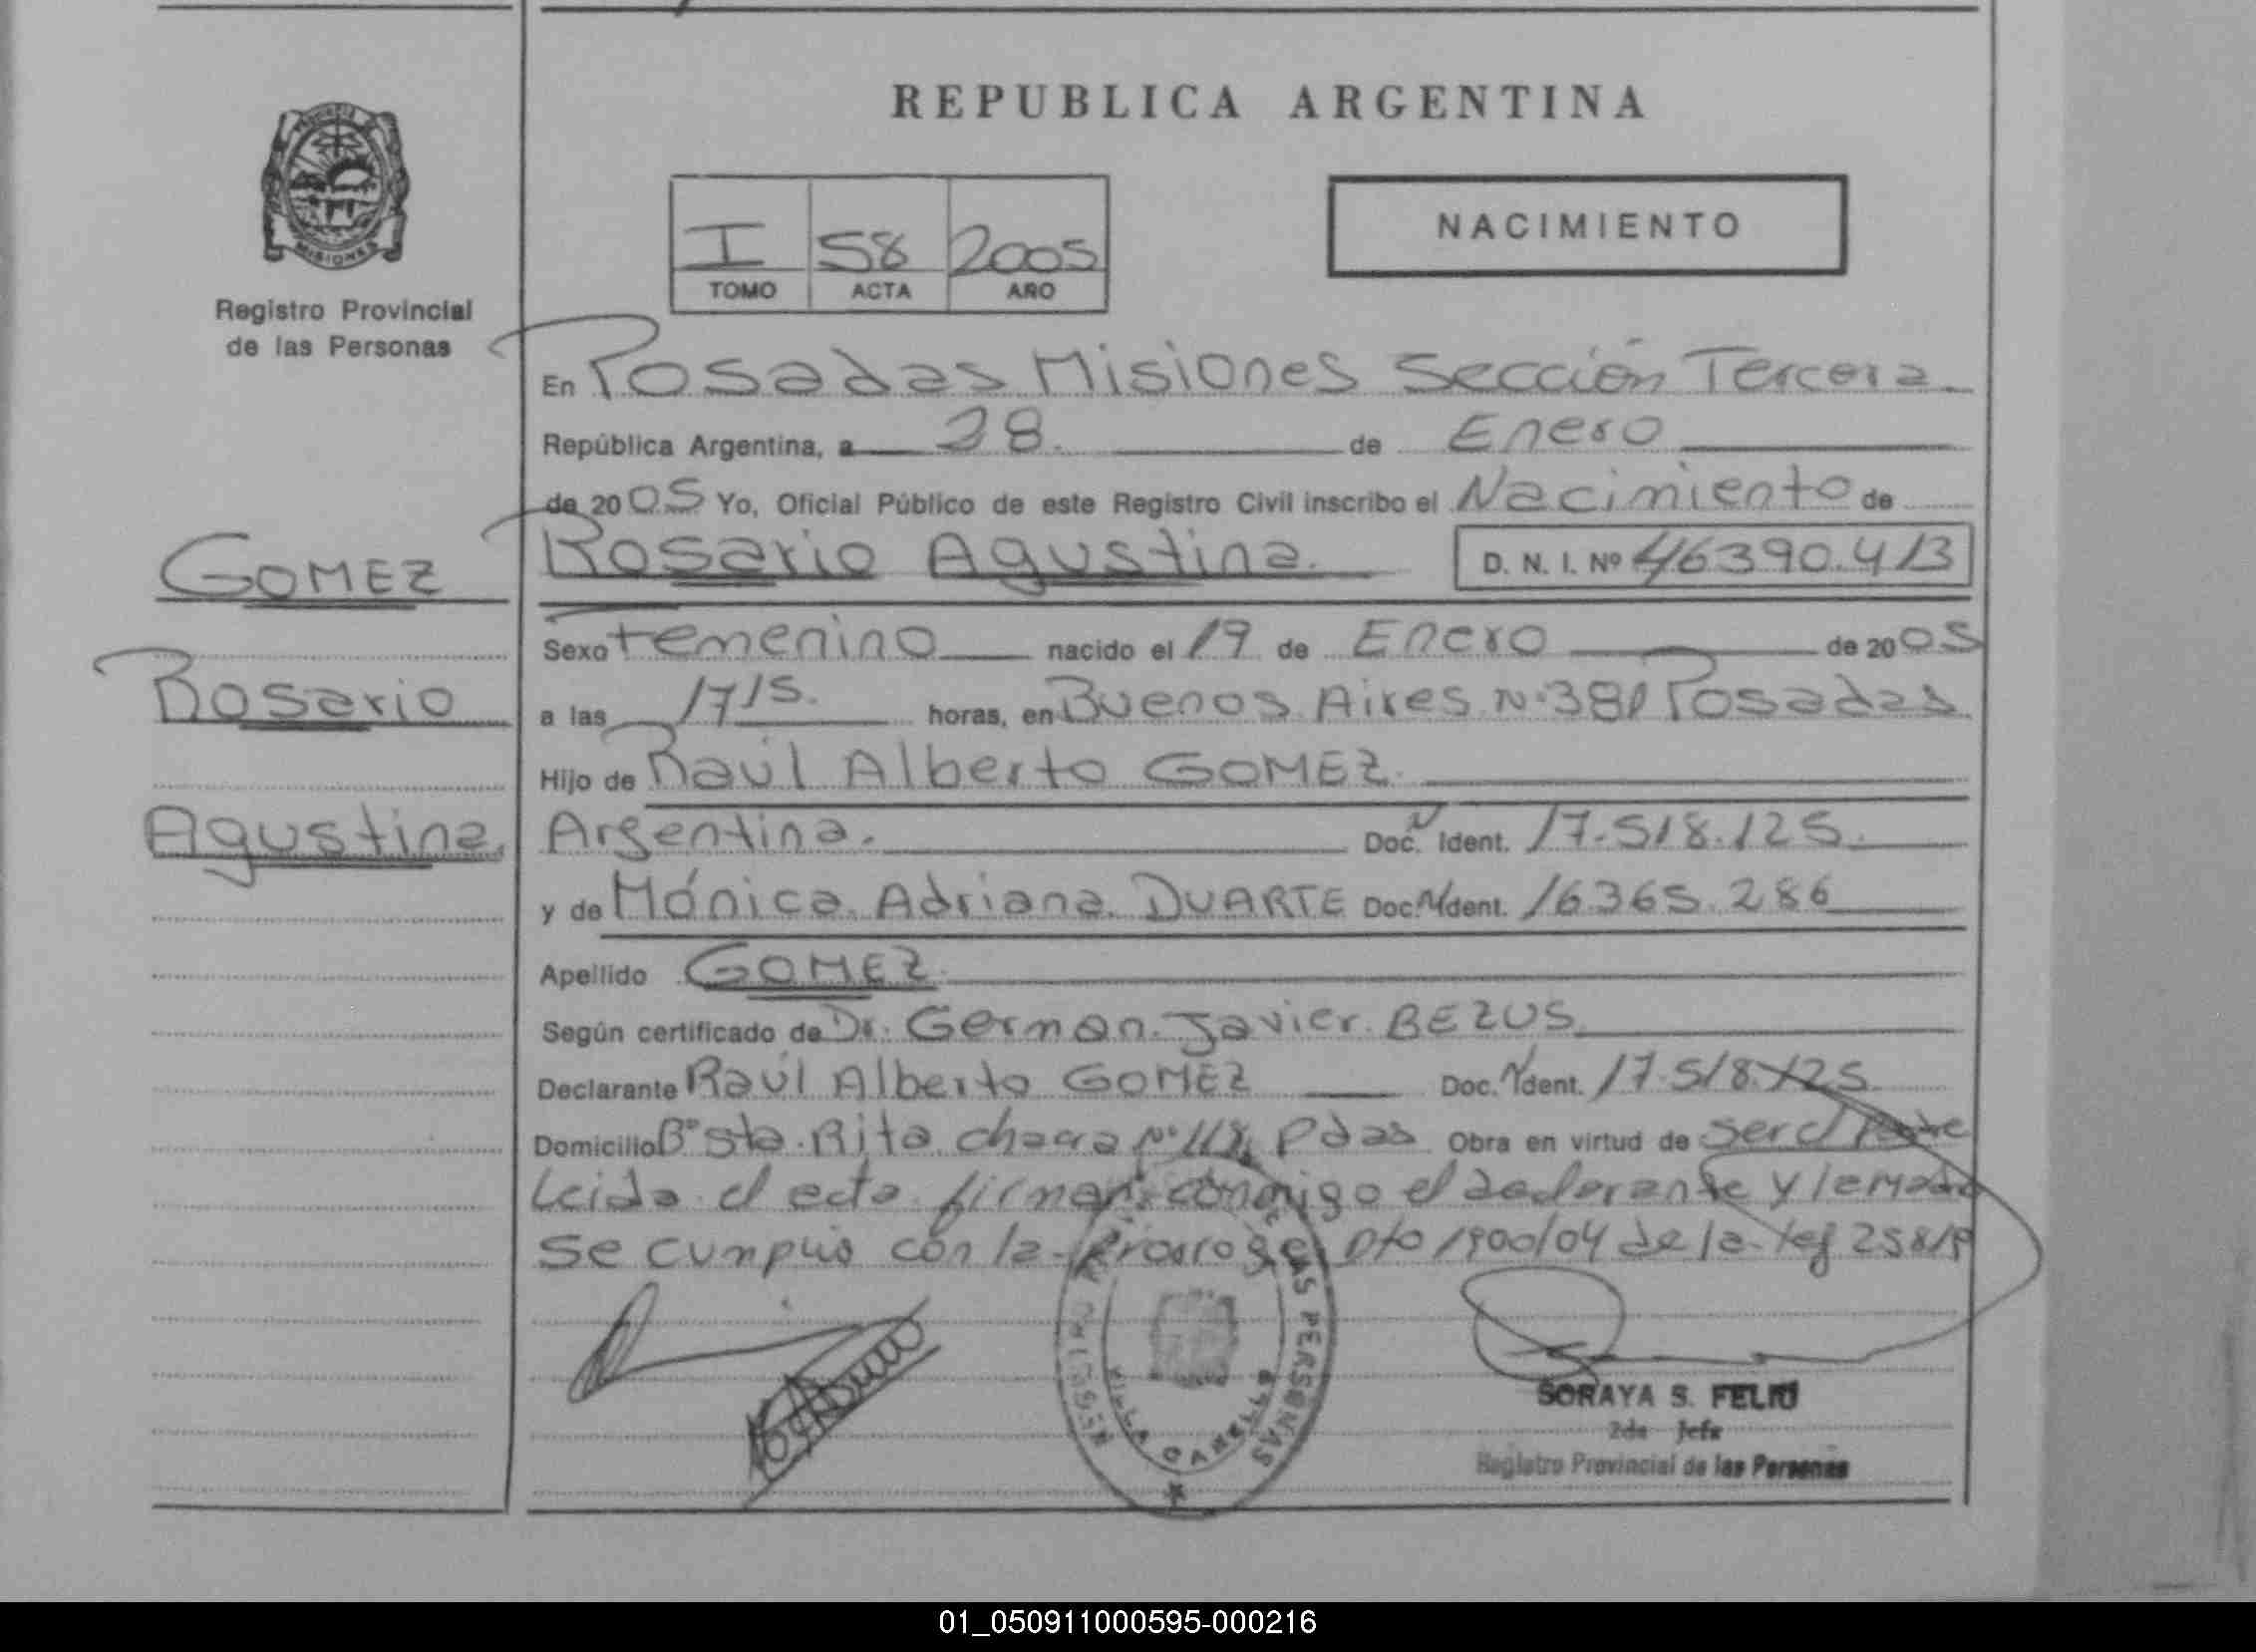 REPUBLICA ARGENTINA
PROVINCIA DE
MISIONES
Registro Provincial
de las Personas
I 58 2005
TOMO ACTA AÑO
NACIMIENTO
En Posadas Misiones Sección Tercera
República Argentina, a 28 de Enero
de 2005 Yo, Oficial Público de este Registro Civil inscribo el Nacimiento de
Rosario Agustina. D. N. I. Nº 46390.413
GOMEZ
Rosario
Agustina.
Sexo Femenino nacido el 19 de Enero de 2005
a las 1715. horas, en Buenos Aires Nº 381 Posadas
Hijo de Raúl Alberto GOMEZ.
Argentina. Doc. N Ident. 17.518.125.
y de Mónica Adriana DUARTE Doc. N Ident. 16365.286
Apellido GOMEZ.
Según certificado de Dr. German Javier BEZUS.
Declarante Raúl Alberto GOMEZ Doc. N Ident. 17.518.125.
Domicilio Bº Sta. Rita chacra Nº 118, Pdas Obra en virtud de ser el Padre
Leida el acta firman conmigo el declarante y la Madre
Se cumplió con la Prorroga Dto 1900/04 de la ley 25819
LAS PERSONAS
VILLA CABELLO
SORAYA S. FELIU
2da Jefa
Registro Provincial de las Personas
01_050911000595-000216